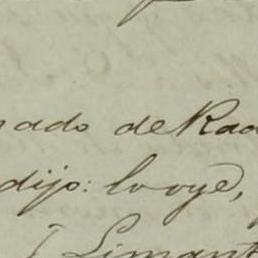 nado de Rad
dijo: lo oye,
J Limant